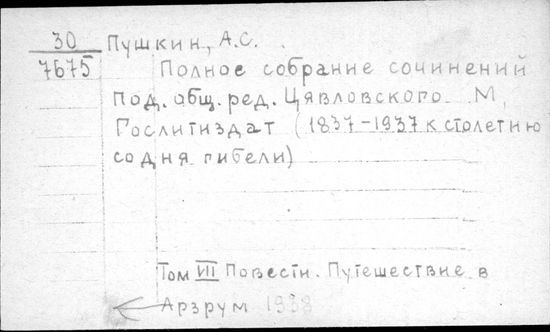 30 Пушкин, А.С.
7675 Полное собрание сочинений
под. общ. ред. Цявловского. М,
Гослитиздат (1837-1937 к столетию
со дня гибели)
Том VII Повести. Путешествие в
Арзрум 1938